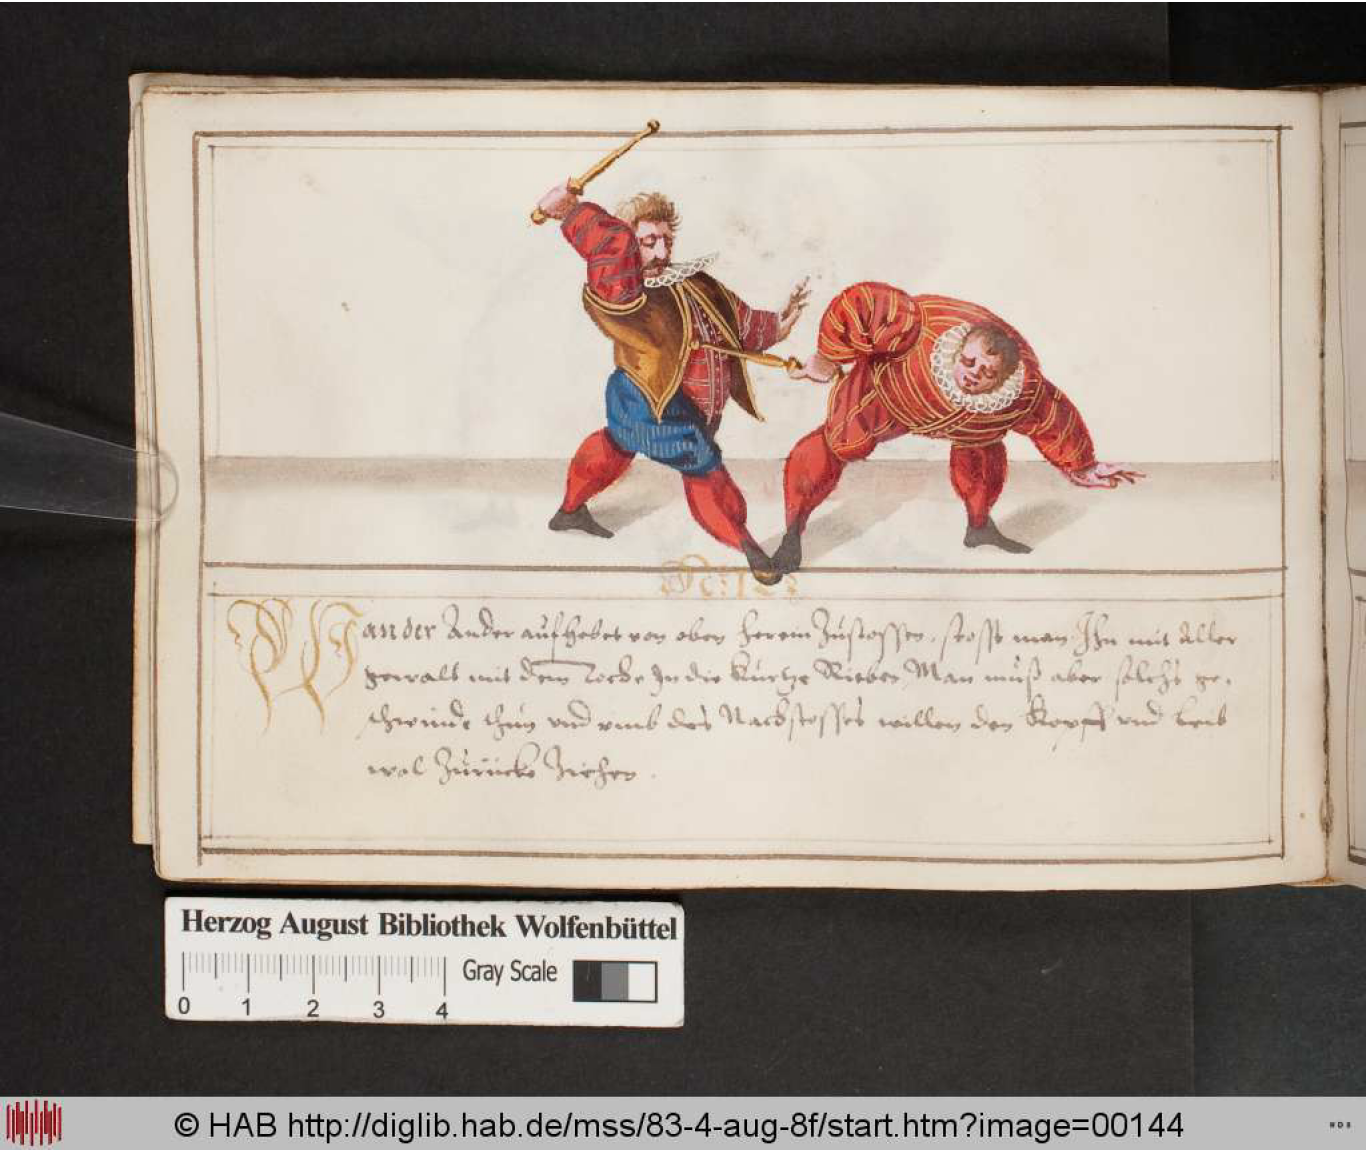 Wan der Ander aufhebet von oben herein Zustossen, stosst man Ihn mit Aller
gewalt mit dem in die Kürtze Rieben Man muß aber solchs ge-
schwinde thun und umb des Nachstosses willen den Kopff und Leib
wol Zurücke Ziehen.
Herzog August Bibliothek Wolfenbüttel
Gray Scale
0 1 2 3 4
© HAB http://diglib.hab.de/mss/83-4-aug-8f/start.htm?image=00144